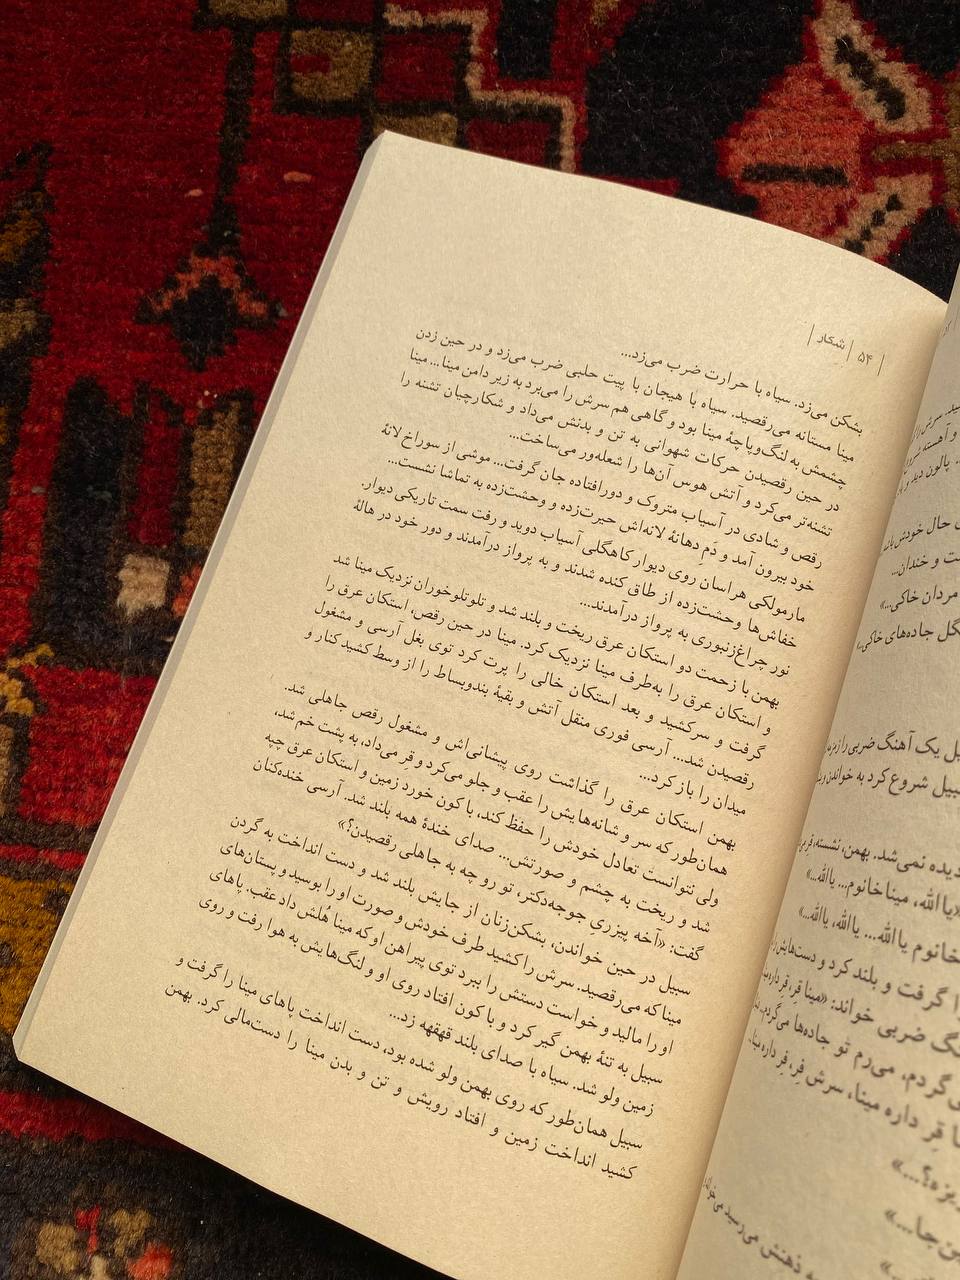 | ۵۴ | شکار |
بشکن می‌زد. سیاه با حرارت ضرب می‌زد...
مینا مستانه می‌رقصید. سیاه با هیجان با پیت حلبی ضرب می‌زد و در حین زدن
چشمش به لنگ‌وپاچهٔ مینا بود و گاهی هم سرش را می‌برد به زیر دامن مینا... مینا
در حین رقصیدن حرکات شهوانی به تن و بدنش می‌داد و شکارچیان تشنه را
تشنه‌تر می‌کرد و آتش هوس آن‌ها را شعله‌ور می‌ساخت...
رقص و شادی در آسیاب متروک و دورافتاده جان گرفت... موشی از سوراخ لانهٔ
خود بیرون آمد و دَمِ دهانهٔ لانه‌اش حیرت‌زده و وحشت‌زده به تماشا نشست...
مارمولکی هراسان روی دیوار کاهگلی آسیاب دوید و رفت سمت تاریکی دیوار.
خفاش‌ها وحشت‌زده از طاق کنده شدند و به پرواز درآمدند و دور خود در هالهٔ
نور چراغ‌زنبوری به پرواز درآمدند...
بهمن با زحمت دو استکان عرق ریخت و بلند شد و تلوتلوخوران نزدیک مینا شد
و استکان عرق را به‌طرف مینا نزدیک کرد. مینا در حین رقص، استکان عرق را
گرفت و سرکشید و بعد استکان خالی را پرت کرد توی بغل آرسی و مشغول
رقصیدن شد... آرسی فوری منقل آتش و بقیهٔ بندوبساط را از وسط کشید کنار و
میدان را باز کرد...
بهمن استکان عرق را گذاشت روی پیشانی‌اش و مشغول رقص جاهلی شد.
همان‌طور که سر و شانه‌هایش را عقب و جلو می‌کرد و قر می‌داد، به پشت خم شد،
ولی نتوانست تعادل خودش را حفظ کند، با کون خورد زمین و استکان عرق چپه
شد و ریخت به چشم و صورتش... صدای خندهٔ همه بلند شد. آرسی خنده‌کنان
گفت: «آخه پیزری جوجه‌دکتر، تو رو چه به جاهلی رقصیدن؟»
سبیل در حین خواندن، بشکن‌زنان از جایش بلند شد و دست انداخت به گردن
مینا که می‌رقصید. سرش را کشید طرف خودش و صورت او را بوسید و پستان‌های
او را مالید و خواست دستش را ببرد توی پیراهن او که مینا هُلش داد عقب. پاهای
سبیل به تنهٔ بهمن گیر کرد و با کون افتاد روی او و لنگ‌هایش به هوا رفت و روی
زمین ولو شد. سیاه با صدای بلند قهقهه زد...
سبیل همان‌طور که روی بهمن ولو شده بود، دست انداخت پاهای مینا را گرفت و
کشید انداخت زمین و افتاد رویش و تن و بدن مینا را دست‌مالی کرد. بهمن
حال خودش
ت و خندان...
مردان خاکی...»
گل جاده‌های خاکی...
بیل یک آهنگ ضربی را
سبیل شروع کرد به خواندن
دیده نمی‌شد. بهمن، نشسته،
«یا الله، مینا خانوم... یا الله...»
خانوم یا الله... یا الله، یا الله...»
را گرفت و بلند کرد و دست‌هایش
نگ ضربی خواند: «مینا قِر، قِر داره
ی‌گردم، می‌رم تو جاده‌ها می‌گردم،
ا قِر داره مینا، سرش فِر، قِر داره مینا
یزه؟...»
ین‌جا...»
ذهنش می‌رسید